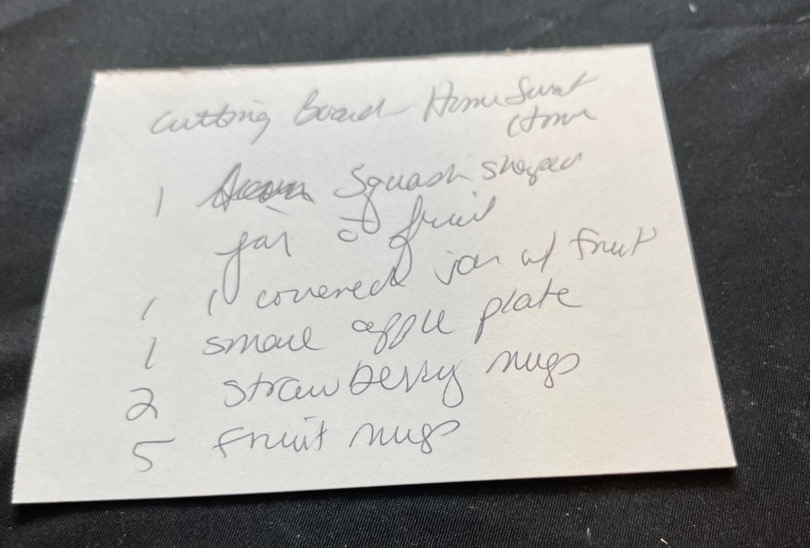 Cutting Board Home Sweet
Home
1 Squash shaped
jar c fruit
1 1 covered jar w/ fruit
1 small apple plate
2 strawberry mugs
5 fruit mugs